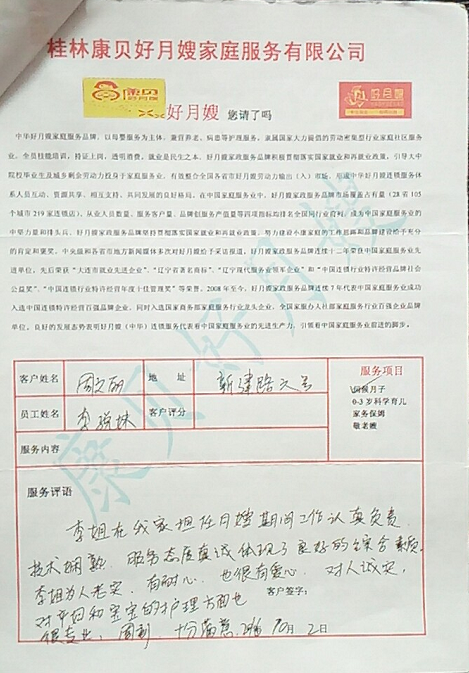 桂林康贝好月嫂家庭服务有限公司
康贝
好月嫂
好月嫂 您请了吗
中华好月嫂家庭服务品牌，以母婴服务为主体，兼营养老、病患等护理服务，隶属国家大力提倡的劳动密集型行业家庭社区服务
业，全员技能培训，持证上岗，透明消费，就业是民生之本，好月嫂家政服务品牌积极贯彻落实国家就业和再就业政策，引导大中
院校毕业生及城乡剩余劳动力投身于家庭服务业，有效整合全国各省市好月嫂劳动力输出（入）市场，形成中华好月嫂连锁服务
体系人员互动、资源共享、相互支持、共同发展的良好格局，在中国家庭服务业中，好月嫂家政服务品牌市场覆盖占有量（28省105
个城市219家连锁店），从业人员数量、服务客户量、品牌创服务产值量等四项指标均排名全国同行业首列，成为中国家庭服务业的
中坚力量和排头兵，好月嫂家政服务品牌坚持贯彻落实国家就业和再就业政策，努力建设小康家庭的工作思路和品牌建设给予充分
的肯定和褒奖。中央级和各省市地方新闻媒体多次对好月嫂给予采访报道，好月嫂家政服务品牌连续十二年荣获中国家庭服务业先
进单位，先后荣获“大连市就业先进企业”、“辽宁省著名商标”、“辽宁现代服务业领军企业”和“中国连锁行业特许经营品牌社会
公益奖”、“中国连锁行业特许经营年度十佳管理奖”等荣誉。2008年至今，好月嫂家政服务品牌连续7年代表中国家庭服务业成功
入选中国连锁特许经营百强品牌企业，同时入选国家商务部家庭服务行业龙头企业、全国家服办人社部家庭行业百强企业品牌
单位。良好的发展态势表明好月嫂（中华）连锁服务代表着中国家庭服务业的先进生产力，引领着中国家庭服务业前进的脚步。
客户姓名 周文丽 地 址 新建路六号 服务项目
员工姓名 李 林 客户评分
伺候月子
0-3岁科学育儿
家务保姆
敬老嫂
服务内容
康贝好月嫂
服务评语
李姐在我家担任月嫂期间工作认真负责
技术娴熟，服务态度真诚体现了良好的综合素质。
李姐为人老实，有耐心，也很有爱心，对人诚实，
客户签字：
对产妇和宝宝的护理方面也
很专业，周到，十分满意。 10月2日